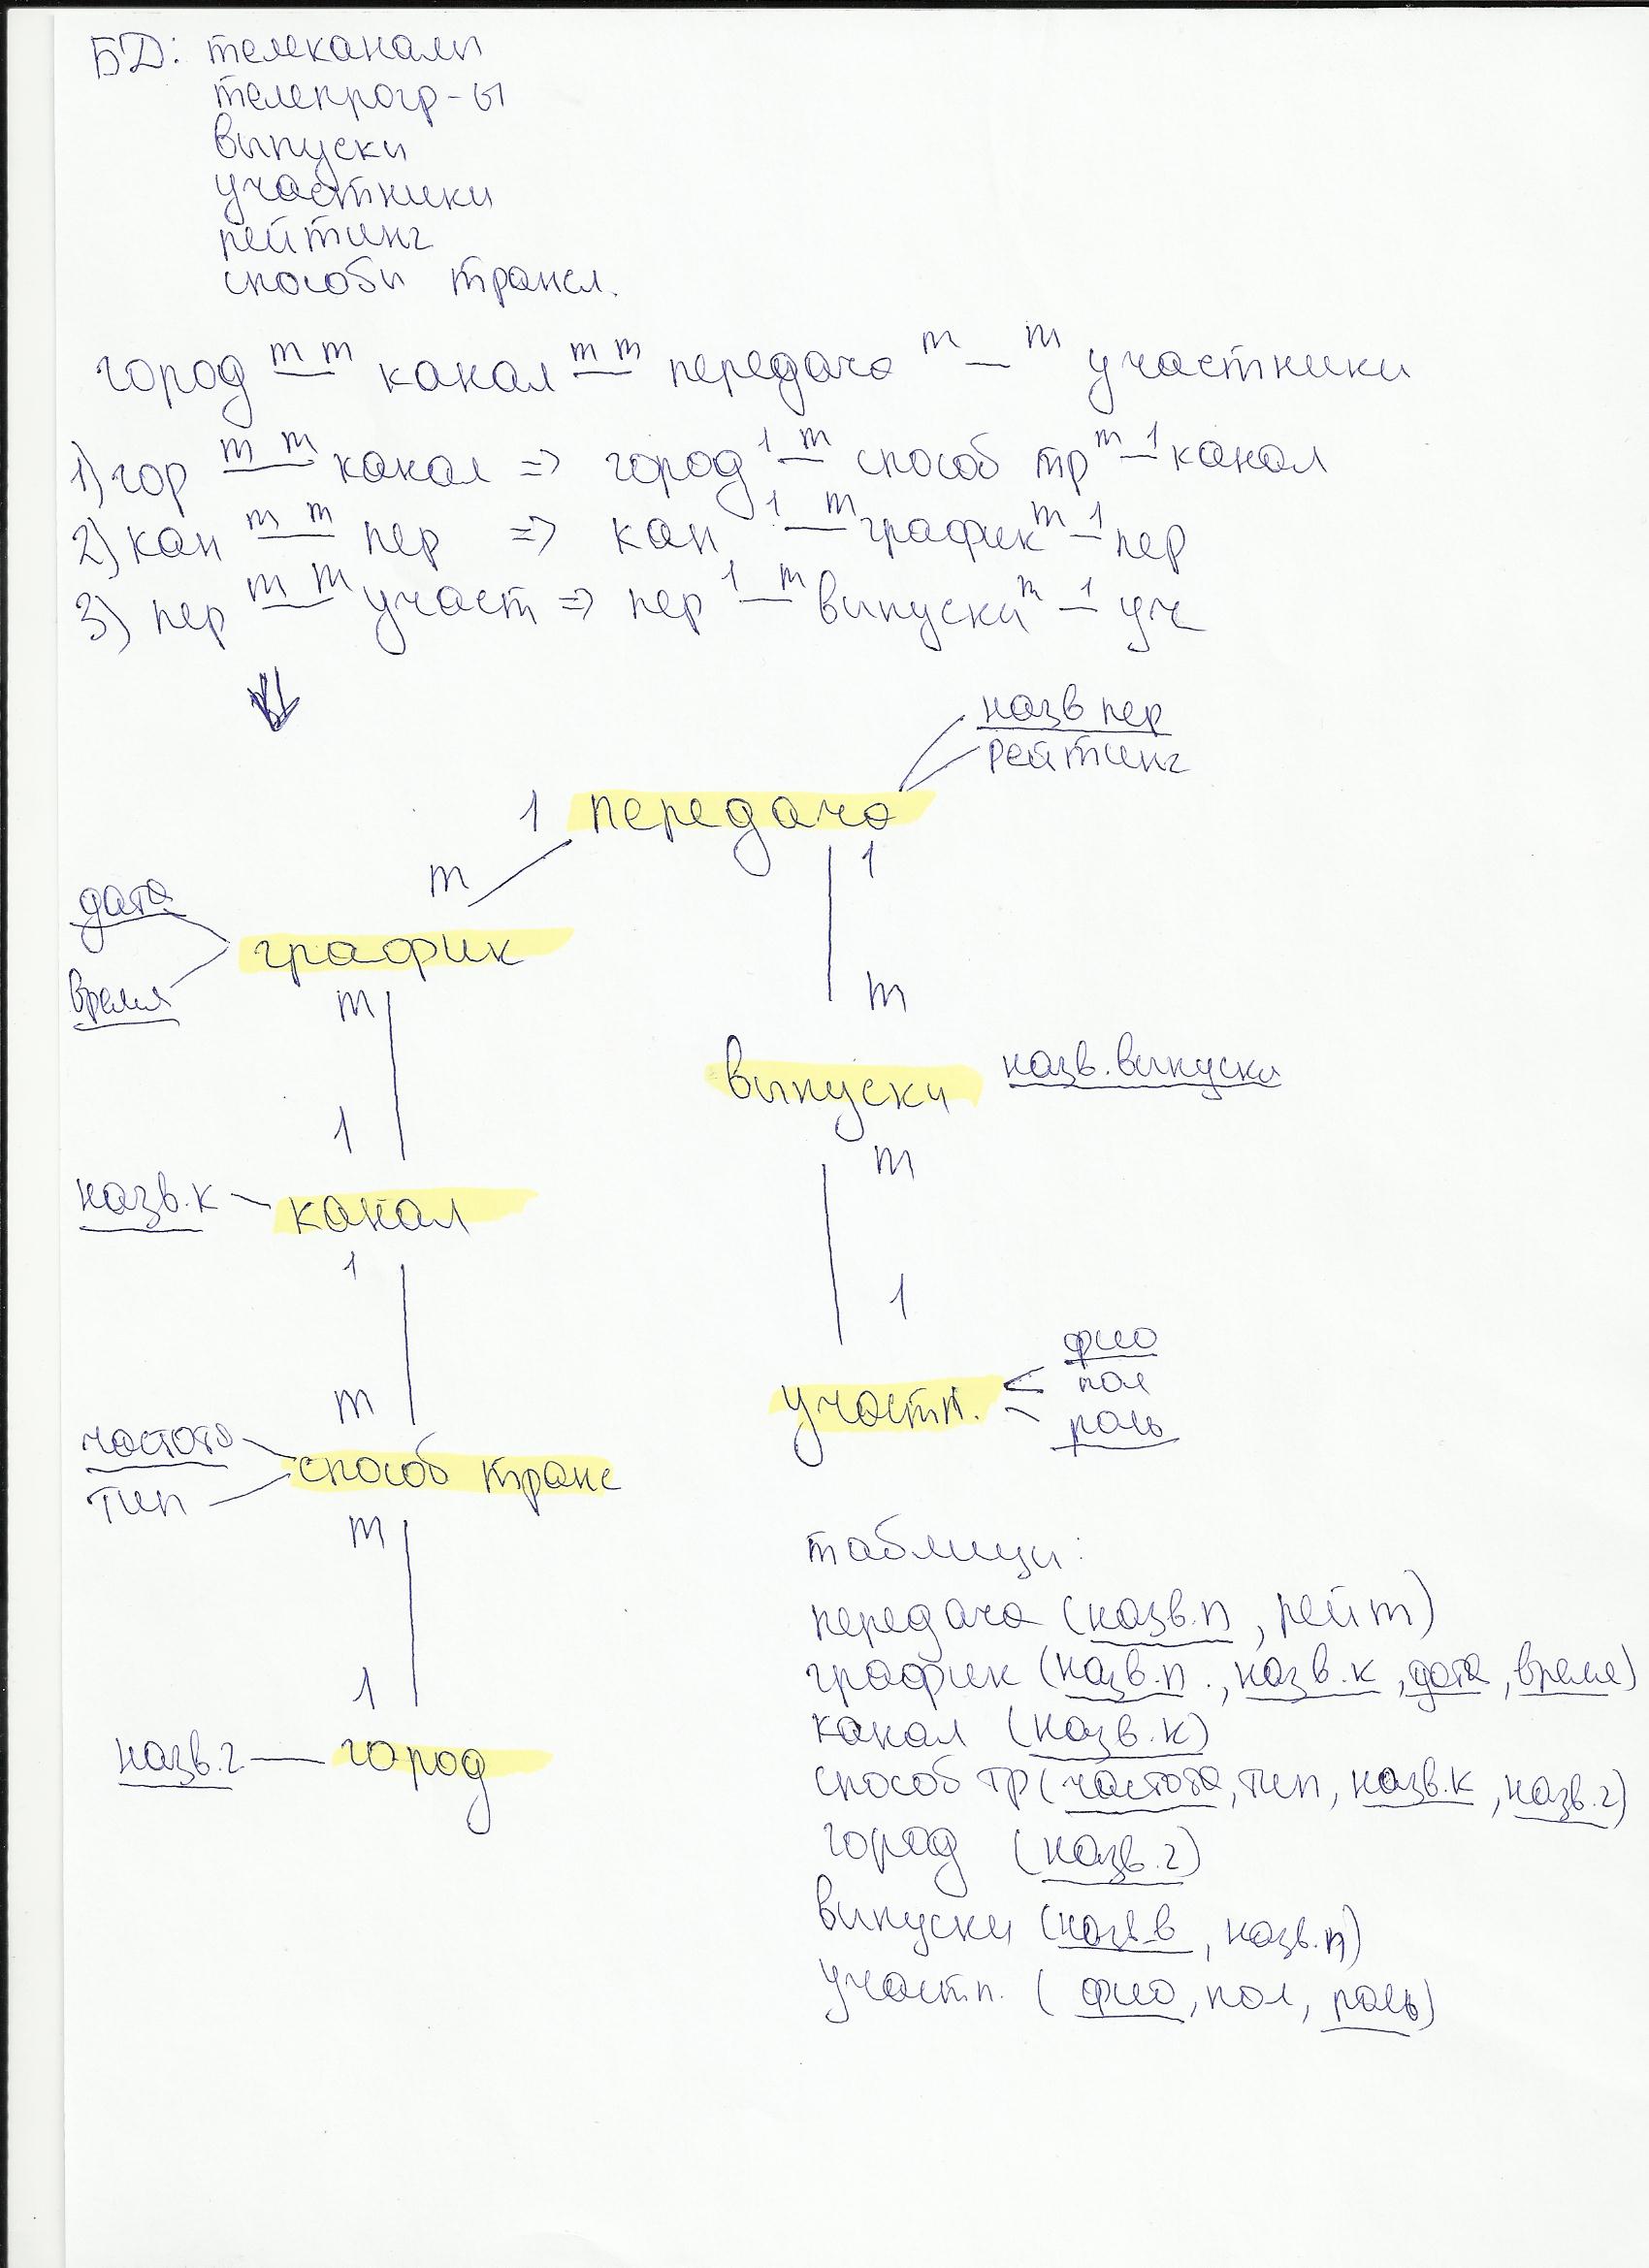 БД: телеканалы
телепрогр-ы
выпуски
участники
рейтинг
способы трансл.
город m m канал m m передача m m участники
1) гор m m канал => город 1 m способ тр m 1 канал
2) кан m m пер => кан 1 m график m 1 пер
3) пер m m участ => пер 1 m выпуски m 1 уч
назв пер
рейтинг
1 передача
m 1
дата
график
время
m m
выпуски назв. выпуска
1 m
назв.к канал
1 1
фио
участн. пол
m роль
частота
способ транс
тип
m
таблицы:
передача (назв.п, рейт)
график (назв.п., назв.к, дата, время)
1 канал (назв.к)
назв.г город способ тр (частота, тип, назв.к, назв.г)
город (назв.г)
выпуски (назв.в, назв.п)
участн. (фио, пол, роль)